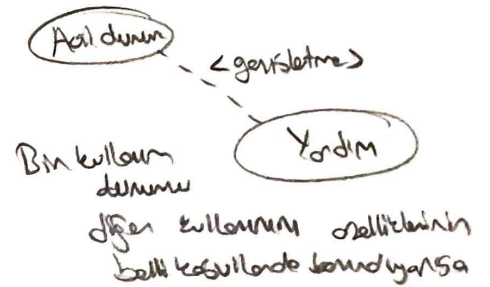 Acil durum
<genişletme>
Yardım
Bir kullanım
durumu
diğer kullanımın özelliklerinin
belli koşullarda barındırıyorsa